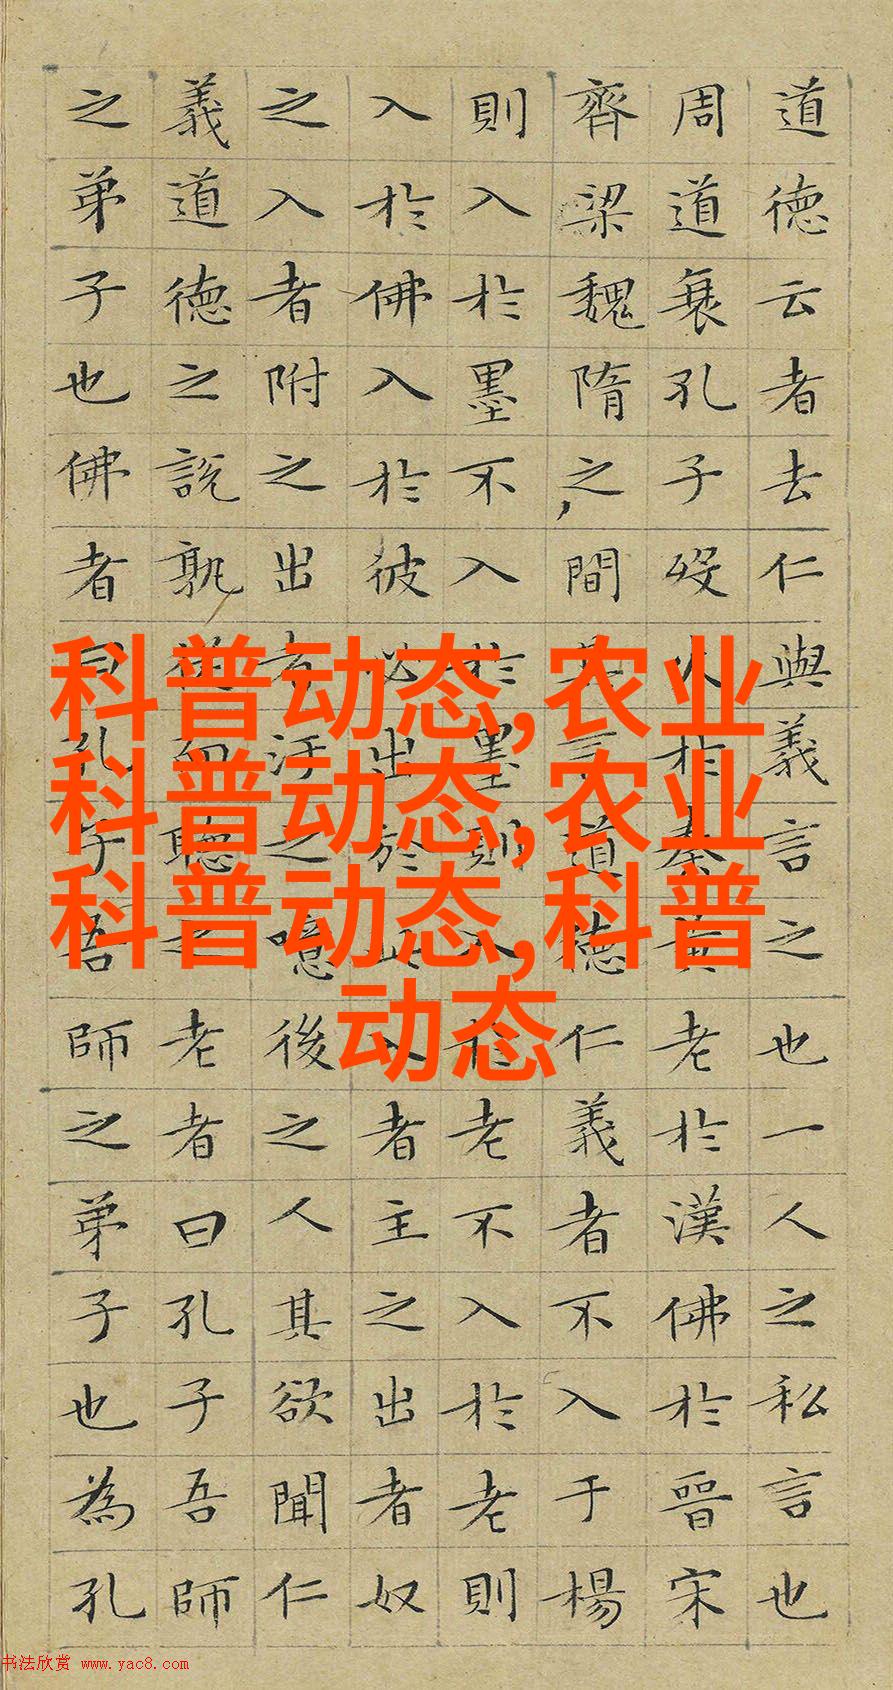 道德云者去仁與義言之也一人之私言也
周道衰孔子歿火於秦黄老於漢佛於晉宋
齊梁魏隋之間其言道德仁義者不入于楊
則入於墨不入於墨則入於老不入於老則
入於佛入於彼必出於此入者主之出者奴
之入者附之出者汙之噫後之人其欲聞仁
義道德之説孰從而聽之老者曰孔子吾師
之弟子也佛者曰孔子吾師之弟子也為孔
科普动态,农业
科普动态,农业
科普动态,科普
动态
书法欣赏 www.yac8.com